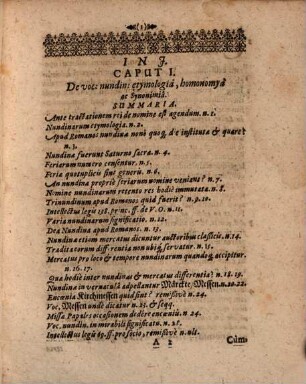 I N J.
CAPUT I.
De voce nundin: etymologiâ, homonomyâ
ac Synonimiâ.
SUMMARIA.
Ante tractationem rei de nomine est agendum. n. 1.
Nundinarum etymologia. n. 2.
Apud Romanos nundinæ nonô quoq; die institutæ & quare?
n. 3.
Nundinæ fuerunt Saturno sacræ. n. 4.
Feriarum numero censentur. n. 5.
Feriæ quotuplicis sint generis. n. 6.
An nundinæ propriè feriarum nomine veniant? n. 7.
Nomine nundinarum retento res hodiè immutata. n. 8.
Trinundinum apud Romanos quid fuerit? n. 10.
Intellectus legis 138. princ. ff. de V. O. n. 11.
Varia nundinarum significatio. n. 12.
Dea Nundina apud Romanos. n. 13.
Nundinæ etiam mercatus dicuntur auctoribus classicis. n. 14.
Traditarum differentia non ubiq; observatur. n. 15.
Mercatus pro loco & tempore nundinarum quandoq; accipitur.
n. 16. 17.
Quæ hodiè inter nundinas & mercatus differentia? n. 18. 19.
Nundinæ in vernaculâ appellantur Märckte/Messen. n. 20. 22.
Encænia Kirchmessen quid sint? remissivè n. 24.
Voc. Messen unde dicatur n. 23. & seqq.
Missa Papalis occasionem dedêre encæniis. n. 24.
Voc. nundin. in mirabili significatio. n. 25.
Intellectus legis 69. ff. pro socio, remissivè n. ult.
A 2
Cùm